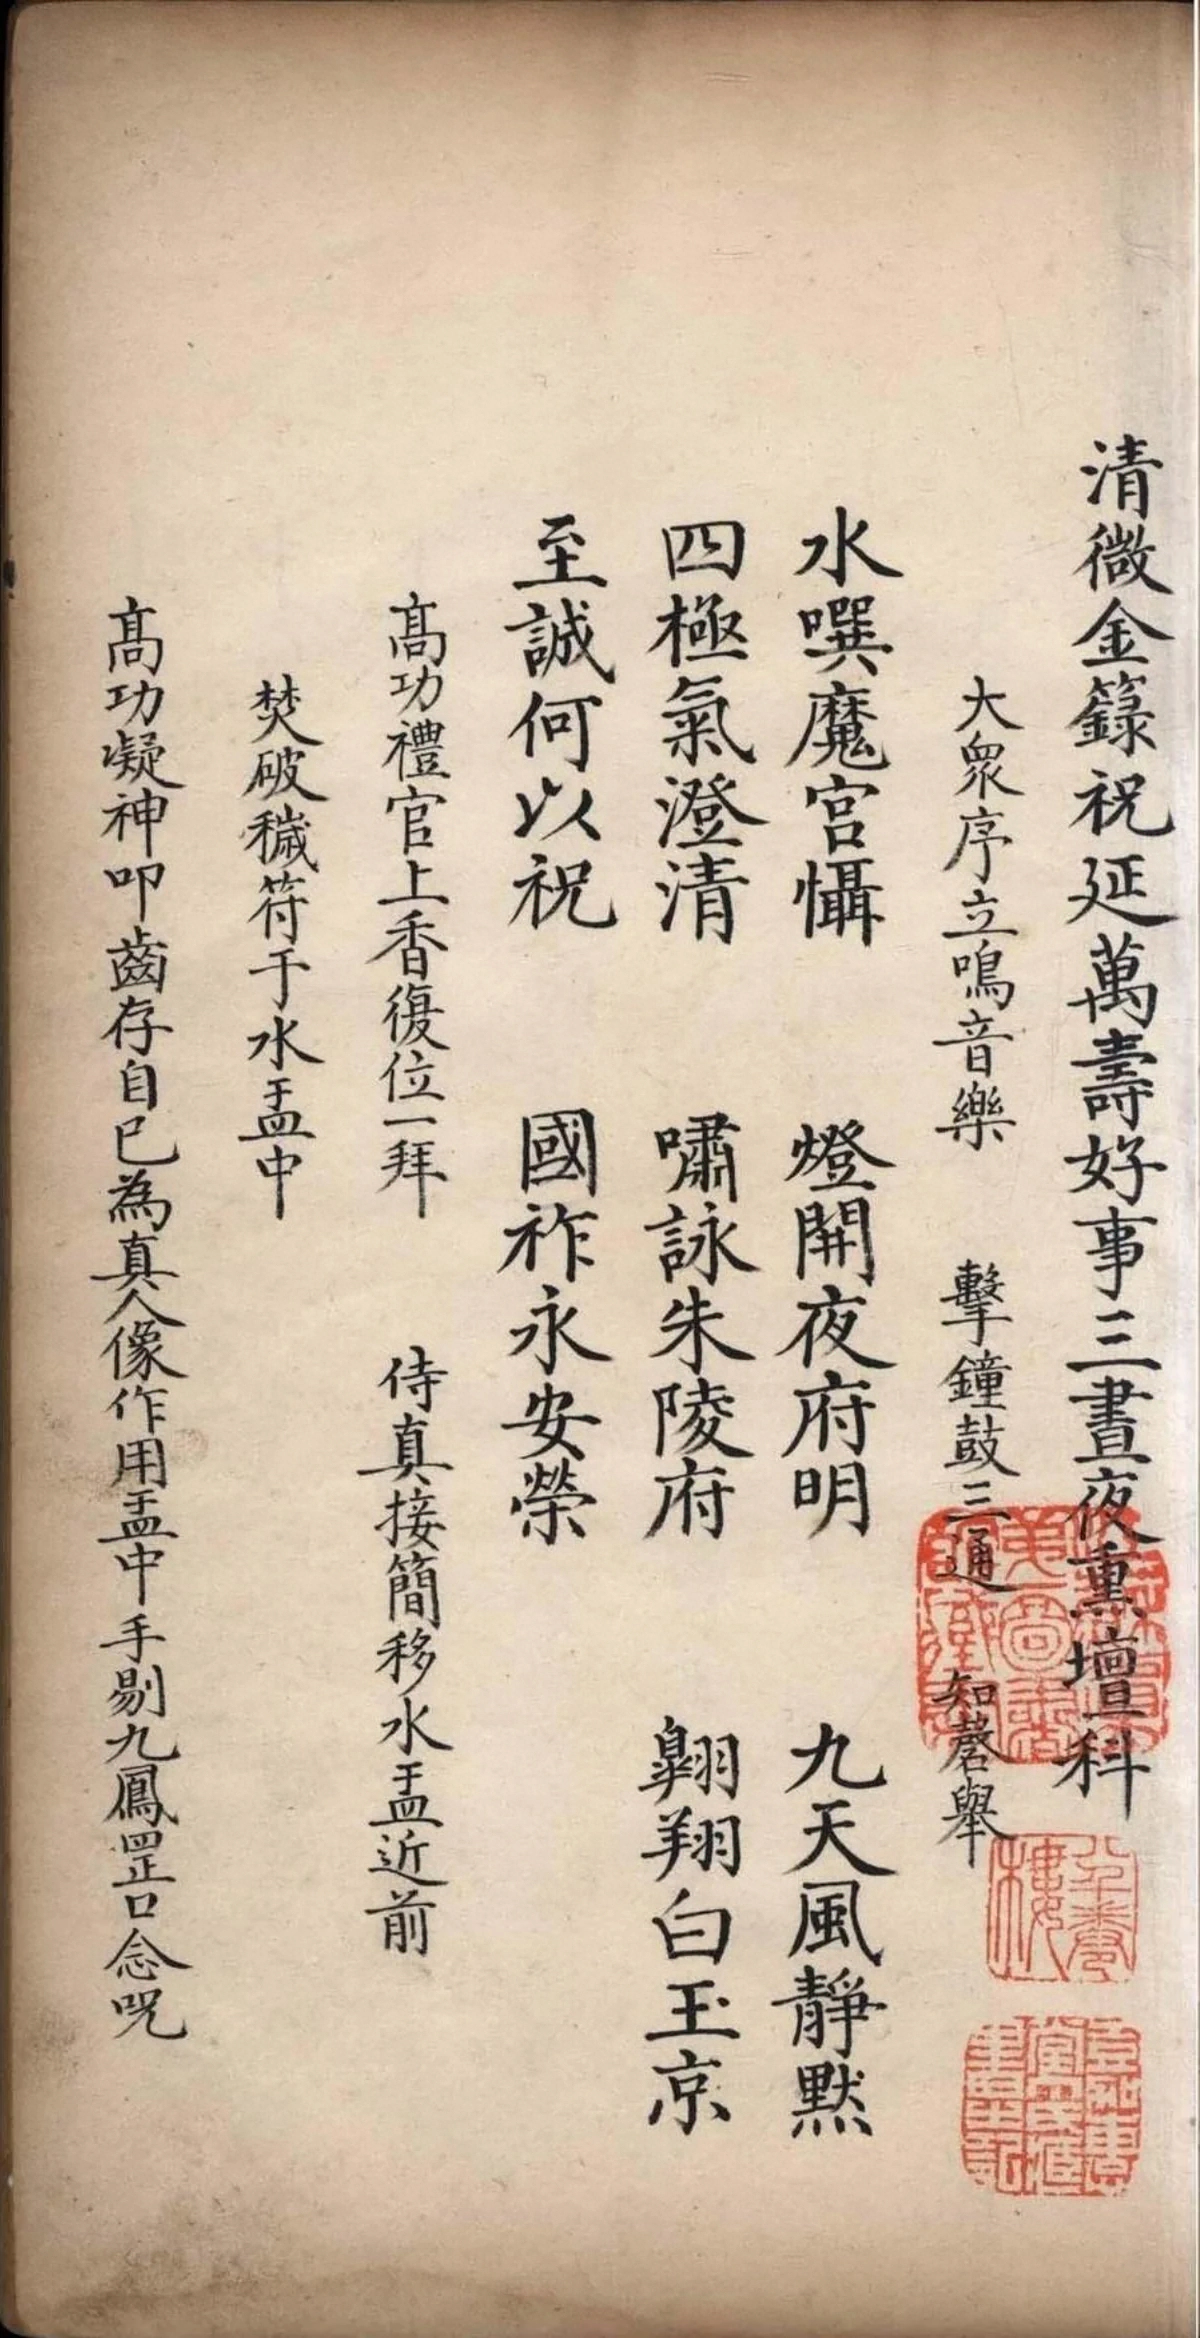 清微金籙祝延萬壽好事三晝夜熏壇科
大眾序立鳴音樂 擊鐘鼓三通 知磬舉
水噀魔宮懾 燈開夜府明 九天風靜默
四極氣澄清 嘯詠朱陵府 翺翔白玉京
至誠何以祝 國祚永安榮
髙功禮官上香復位一拜 侍真接簡移水盂近前
焚破穢符于水盂中
髙功凝神叩齒存自已為真人像作用盂中手剔九鳳罡口念呪